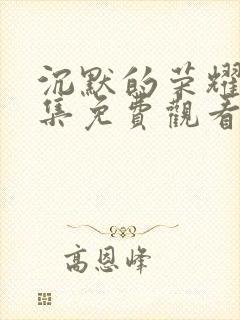 沉默的荣耀
集免費觀看
高恩峰